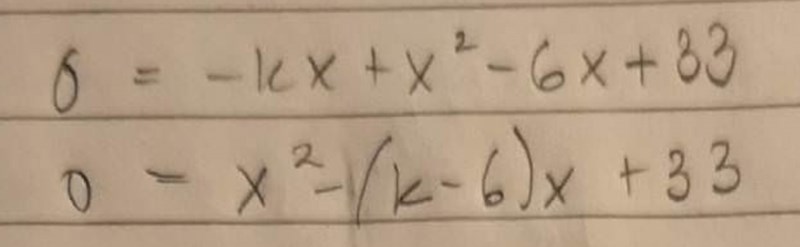 0 = -kx + x² - 6x + 33
0 = x² - (k - 6)x + 33